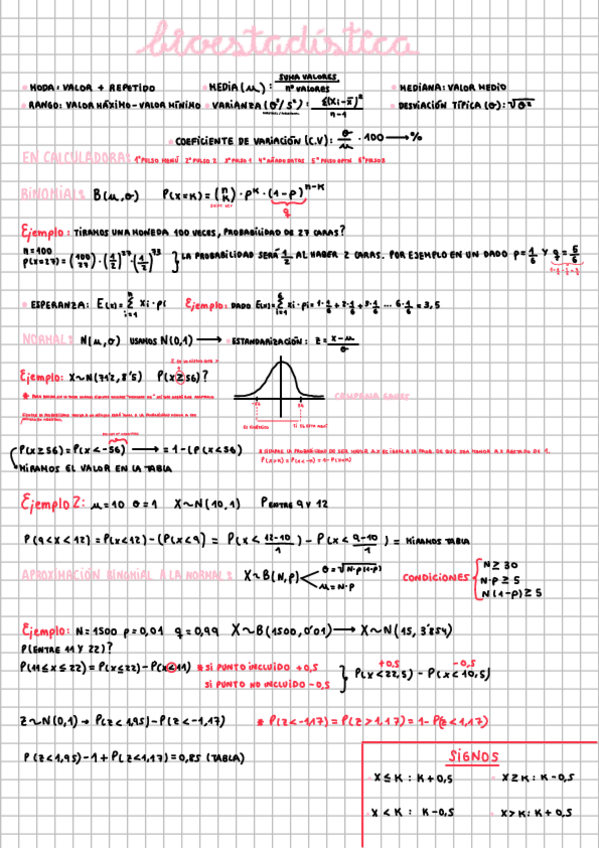 bioestadística
• MODA: VALOR + REPETIDO • MEDIA (μ): SUMA VALORES / Nº VALORES • MEDIANA: VALOR MEDIO
• RANGO: VALOR MÁXIMO - VALOR MÍNIMO • VARIANZA (σ²/S²): Σ(Xi-x̄)² / n-1 • DESVIACIÓN TÍPICA (σ): √σ²
• COEFICIENTE DE VARIACIÓN (C.V): σ/μ · 100 → %
EN CALCULADORA: 1º PULSO MENÚ 2º PULSO 2 3º PULSO 1 4º AÑADO DATOS 5º PULSO OPTN 6º PULSO 3
BINOMIAL: B(μ,σ) P(X=K) = (n K) · p^K · (1-p)^n-K
q
Ejemplo: TIRAMOS UNA MONEDA 100 VECES, PROBABILIDAD DE 27 CARAS?
n=100
P(X=27) = (100 27) · (1/2)^27 · (1/2)^73 } LA PROBABILIDAD SERÁ 1/2 AL HABER 2 CARAS. POR EJEMPLO EN UN DADO p=1/6 Y q=5/6
• ESPERANZA: E(x) = Σ Xi · Pi Ejemplo: DADO E(x) = Σ Xi · Pi = 1·1/6 + 2·1/6 + 3·1/6 ... 6·1/6 = 3,5
NORMAL: N(μ,σ) USAMOS N(0,1) → • ESTANDARIZACIÓN: Z = X-μ / σ
Ejemplo: X∼N(71'2, 8'5) P(X≥56)?
CAMPANA GAUSS
-56 56
P(X≥56) = P(X<-56) → = 1-(P(X<56)
MIRAMOS EL VALOR EN LA TABLA
P(X>K) = P(X<-K) = 1-P(X<K)
Ejemplo 2: μ=10 σ=1 X∼N(10,1) P ENTRE 9 Y 12
P(9<X<12) = P(X<12)-(P(X<9) = P(X< 12-10 / 1) - P(X< 9-10 / 1) = MIRAMOS TABLA
APROXIMACIÓN BINOMIAL A LA NORMAL: X∼B(N,P) σ=√N·P(1-P) μ=N·P CONDICIONES { N≥30
N·P≥5
N(1-P)≥5
Ejemplo: N=1500 p=0,01 q=0,99 X∼B(1500,0'01) → X∼N(15, 3'854)
P(ENTRE 11 Y 22)?
P(11≤X≤22) = P(X≤22)-P(X<11) * SI PUNTO INCLUIDO +0,5
SI PUNTO NO INCLUIDO -0,5 } +0,5 -0,5 P(X<22,5) - P(X<10,5)
Z∼N(0,1) → P(Z<1,95)-P(Z<-1,17) * P(Z<-1,17) = P(Z>1,17) = 1-P(Z<1,17)
P(Z<1,95)-1+P(Z<1,17) = 0,85 (TABLA)
SIGNOS
X≤K: K+0,5 X≥K: K-0,5
X<K: K-0,5 X>K: K+0,5